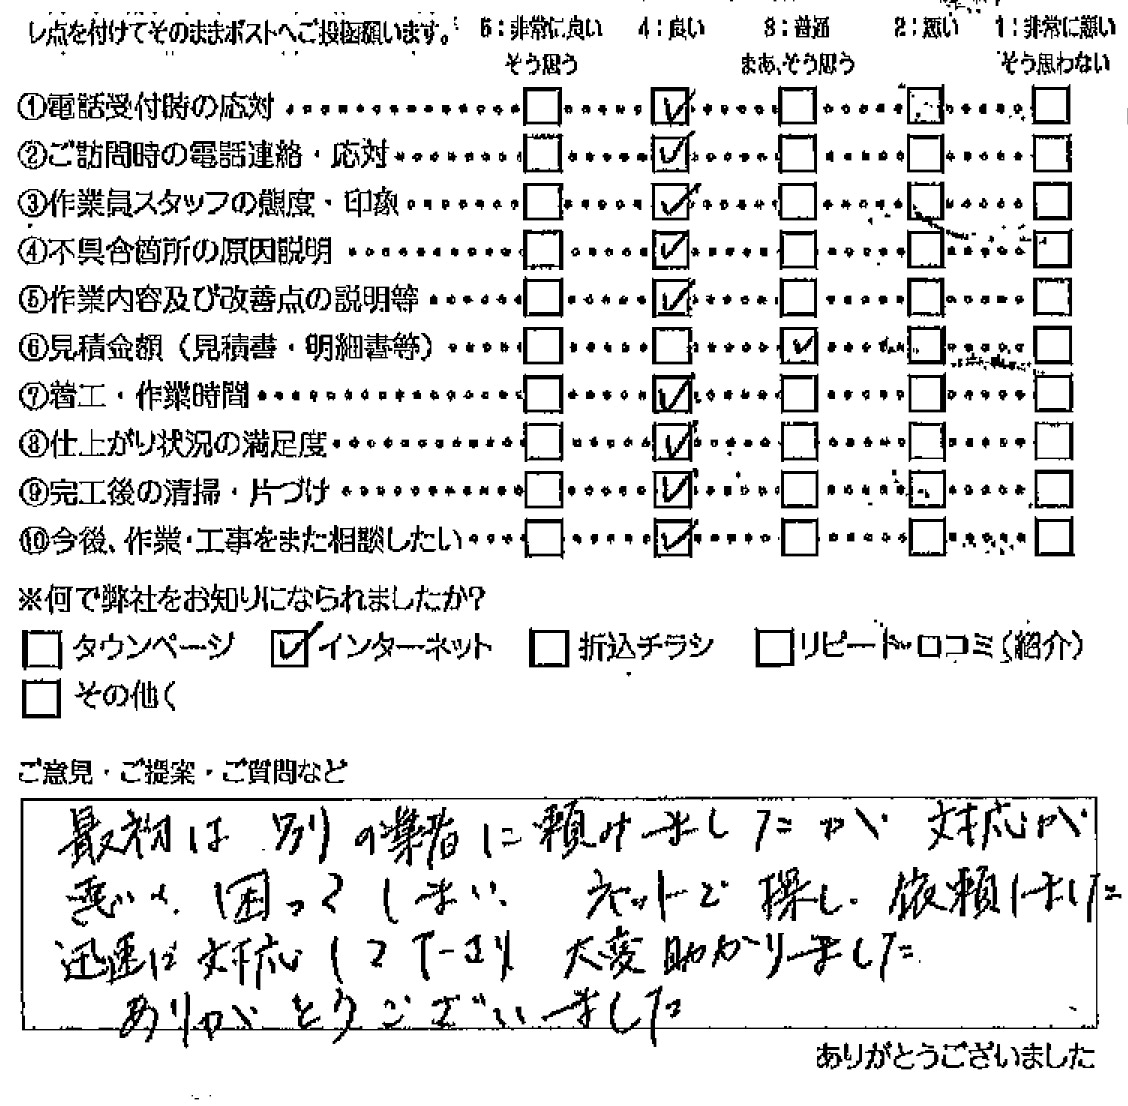 レ点を付けてそのままポストへご投函願います。 5：非常に良い 4：良い 3：普通 2：悪い 1：非常に悪い
そう思う まあ、そう思う そう思わない
①電話受付時の応対
②ご訪問時の電話連絡・応対
③作業員スタッフの態度・印象
④不具合箇所の原因説明
⑤作業内容及び改善点の説明等
⑥見積金額（見積書・明細書等）
⑦着工・作業時間
⑧仕上がり状況の満足度
⑨完工後の清掃・片づけ
⑩今後、作業・工事をまた相談したい
※何で弊社をお知りになられましたか？
タウンページ インターネット 折込チラシ リピート・口コミ（紹介）
その他く
ご意見・ご提案・ご質問など
最初は 別の業者に頼みましたが 対応が
悪く 困ってしまい ネットで探し、依頼しました
迅速に対応して下さり 大変助かりました
ありがとうございました
ありがとうございました